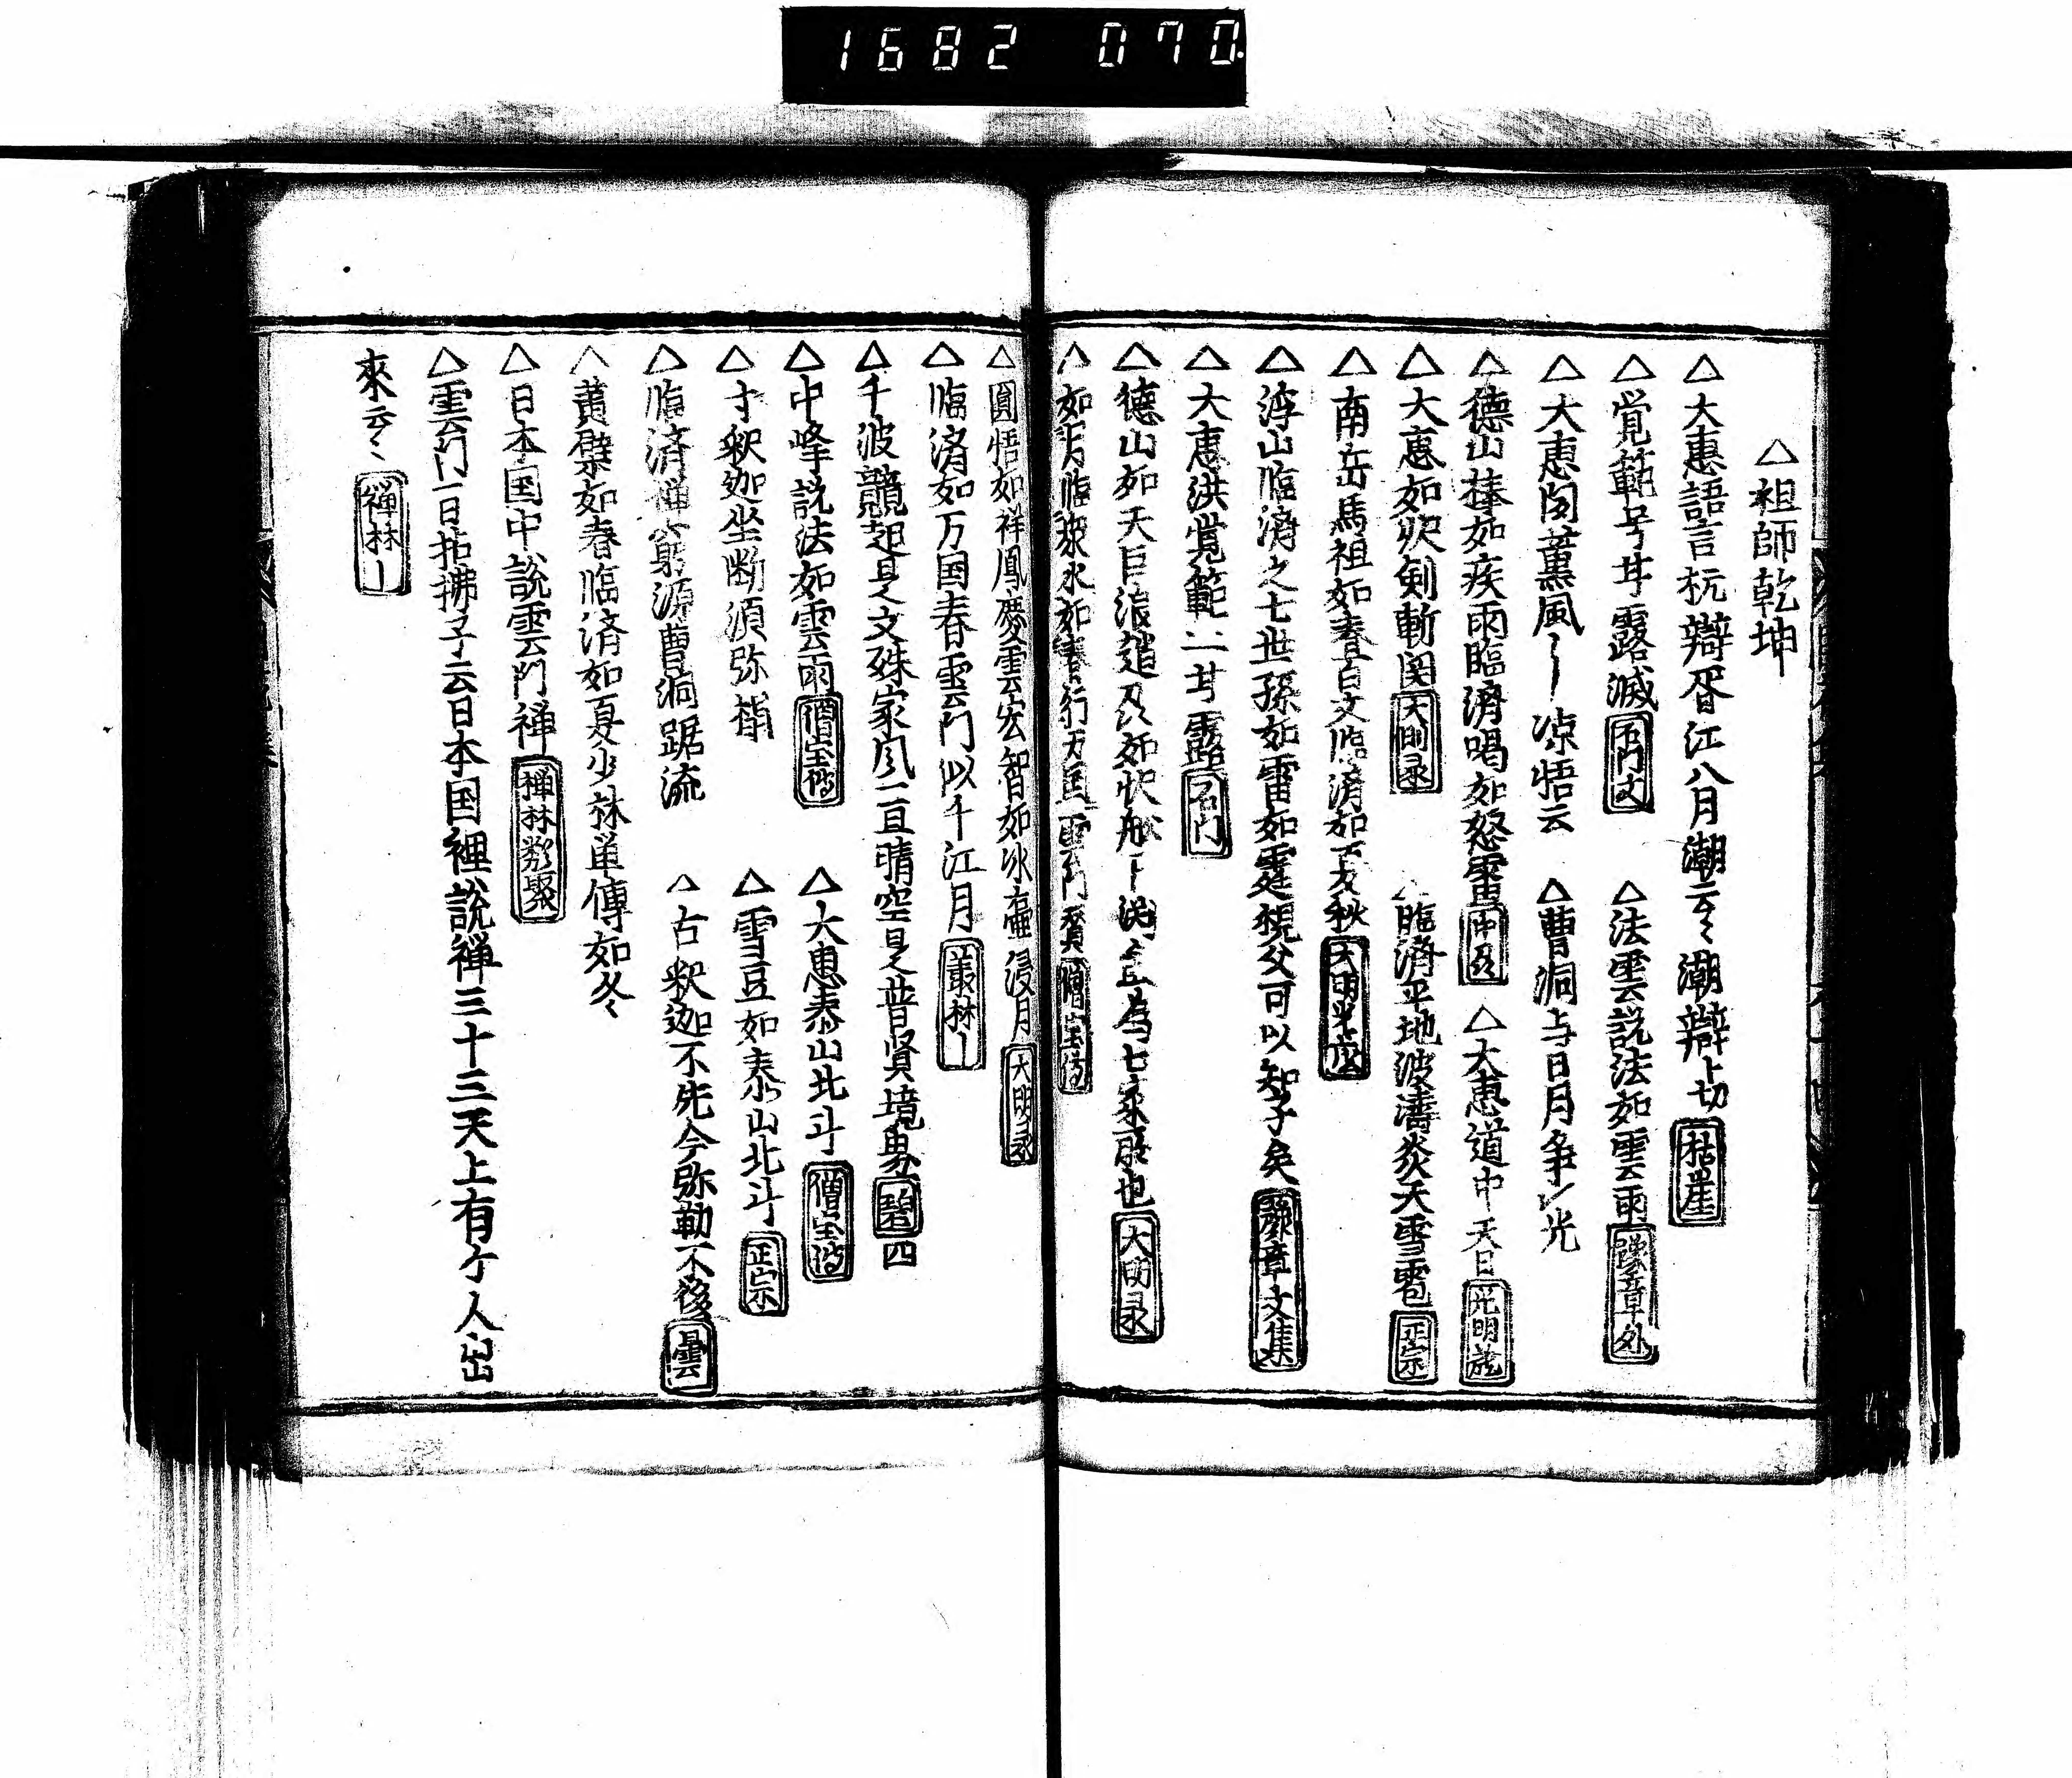 1682 070.
△祖師乾坤
△大惠語言枕辯胥江八月潮云〻潮辯ト切 枯崖
△覚範号甘露滅 石門文 △法雲説法如雲雨 豫章外
△大恵聞薫風〡涼悟云 △曹洞与日月争光
△德山棒如疾雨臨濟喝如怒雷 △大恵道中天日 光明蔵
△大恵如吹剣斬関 大明录 △臨済平地波濤炎天雪雹 正宗
△南岳馬祖如春百丈臨濟如夏秋 大明
△浮山臨濟之七世孫如雷如霆視父可以知子矣 豫章文集
△大恵洪覚範二甘露 石門
△德山如天巨浪如快船下為七家所也 大明录
△如月臨衆水如春行万国雲門 僧宝傳
△圓悟如祥鳳慶雲宏智如冰壷浸月 大明录
△臨济如万国春雲門似千江月 叢林〡
△千波競起是文殊家风一亘晴空是普賢境界 碧四
△中峰説法如雲雨 僧宝傳 △大恵泰山北斗 僧宝傳
△寸釈迦坐断須弥 △雪豆如泰山北斗 正宗
△臨済禅窮源曹洞踞流 △古釈迦不先今弥勒不後 曇雲
△黄檗如春臨済如夏少林単傳如冬
△日本国中説雲門禅 禅林類聚
△雲門一日拈拂子云日本国裡説禅三十三天上有ケ人出
來云〻 禅林〡